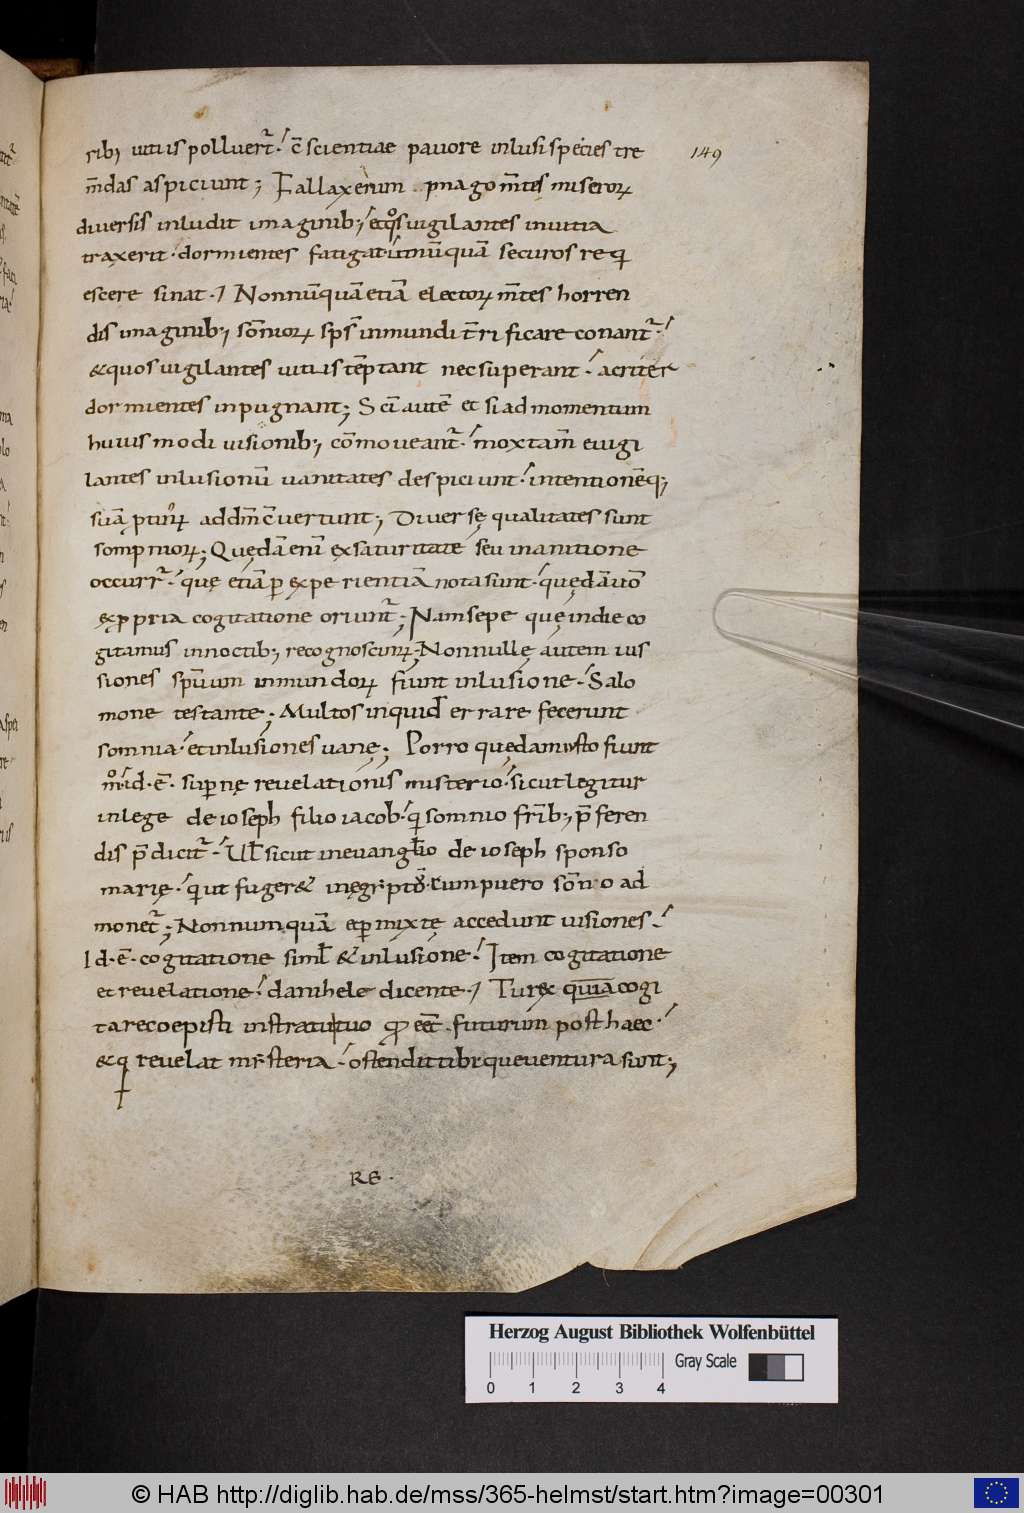 149
rib; uitiis polluert̄ c̄scientiae pauore inlusi species tre
m̄das aspiciunt; Fallax enim imago m̄tes miseroꝝ
diuersis inludit imaginib; et quos uigilantes in uitia
traxerit · dormientes fatigat ut nūquā securos requi
escere sinat · Nonnūquā etiā electoꝝ m̄tes horren
dis imaginib; som̄nioꝝ sps̄ inmundi t̄rificare conant̄ ·
&quos uigilantes uitiis tēptant nec superant · acriter
dormientes inpugnant; Scī autē et si ad momentum
huiusmodi uisionib; cōmoueant̄ · mox tam̄ euigi
lantes inlusionū uanitates despiciunt · intentionēq;
suā addm̄ c̄uertunt; Diuersę qualitates sunt
sompnioꝝ; Quędā enī ex saturitate seu inanitione
occurr̄ · quę etiā ꝑ experientiā nota sunt · quędā uō
ex ꝓpria cogitatione oriunt̄; Nam sepe quę in die co
gitamus in noctib; recognoscim; Nonnullę autem uis
siones spūum inmundoꝝ fiunt inlusione · Salo
mone testante; Multos inquid errare fecerunt
somnia · et inlusiones uanę; Porro quędam iusto fiunt
m° · id · ē · supernę reuelationis misterio · sicut legitur
in lege de ioseph filio iacob · qui somnio fr̄ib; p̄feren
dis p̄dicit̄ · Ul̄ sicut in euanḡlio de ioseph sponso
marię · qui ut fuger& in ęgyptū cum puero som̄no ad
monet̄; Nonnumquā et ꝑmixtę accedunt uisiones ·
Id · ē · cogitatione simł & inlusione · Item cogitatione
et reuelatione · danihele dicente · Tu rex quā cogi
tare coepisti in stratu tuo quid eēt futurum post haec ·
&qui reuelat mysteria · ostendit tibi que uentura sunt;
RE ·
Herzog August Bibliothek Wolfenbüttel
Gray Scale
0 1 2 3 4
© HAB http://diglib.hab.de/mss/365-helmst/start.htm?image=00301